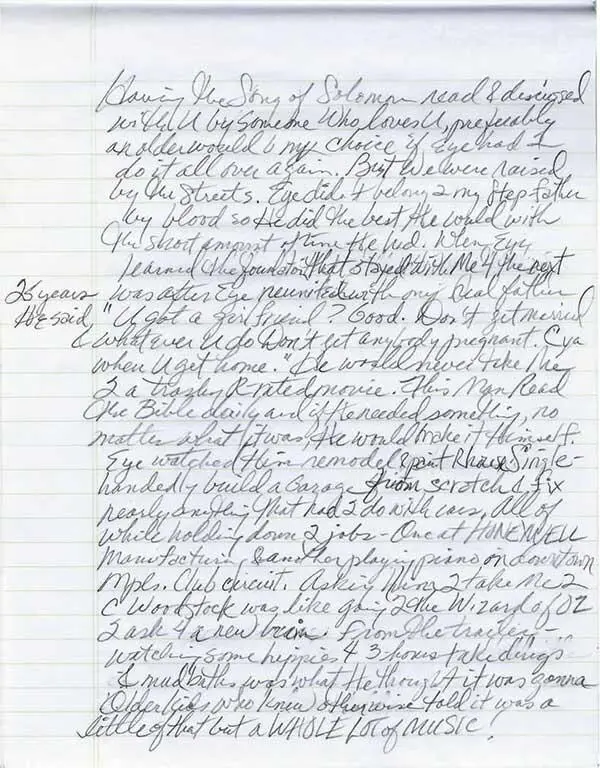 Having the Song of Solomon read & discussed
with U by someone who loves U, preferably
an older would b my choice if Eye had 2
do it all over again. But We were raised
by the Streets. Eye didn't belong 2 my Step father
by blood so He did the best He could with
the short amount of time He had. When Eye
learned the that stayed with Me 4 the next
25 years was after Eye reunited with my Real father
He said, "U got a girlfriend? Good. Don't get married
& whatever U do Don't get anybody pregnant. C ya
when U get home." He would never take Me
2 a trashy R-rated movie. This Man Read
the Bible daily and if He needed something, no
matter what it was, He would make it Himself.
Eye watched Him remodel & paint R house, Single-
handedly build a Garage from scratch & fix
nearly anything that had 2 do with cars. All of
while holding down 2 jobs - One at HONEYWELL
Manufacturing & another playing piano on downtown
Mpls. Club circuit. Asking Him 2 take Me 2
C Woodstock was like going 2 the Wizard of OZ
2 ask 4 a new brain. From the trailers -
watching some hippies 4 3-hours take drugs
& mud baths was what He thought it was gonna b
Older kids who knew otherwise told it was a
little of that but a WHOLE LOT of MUSIC!